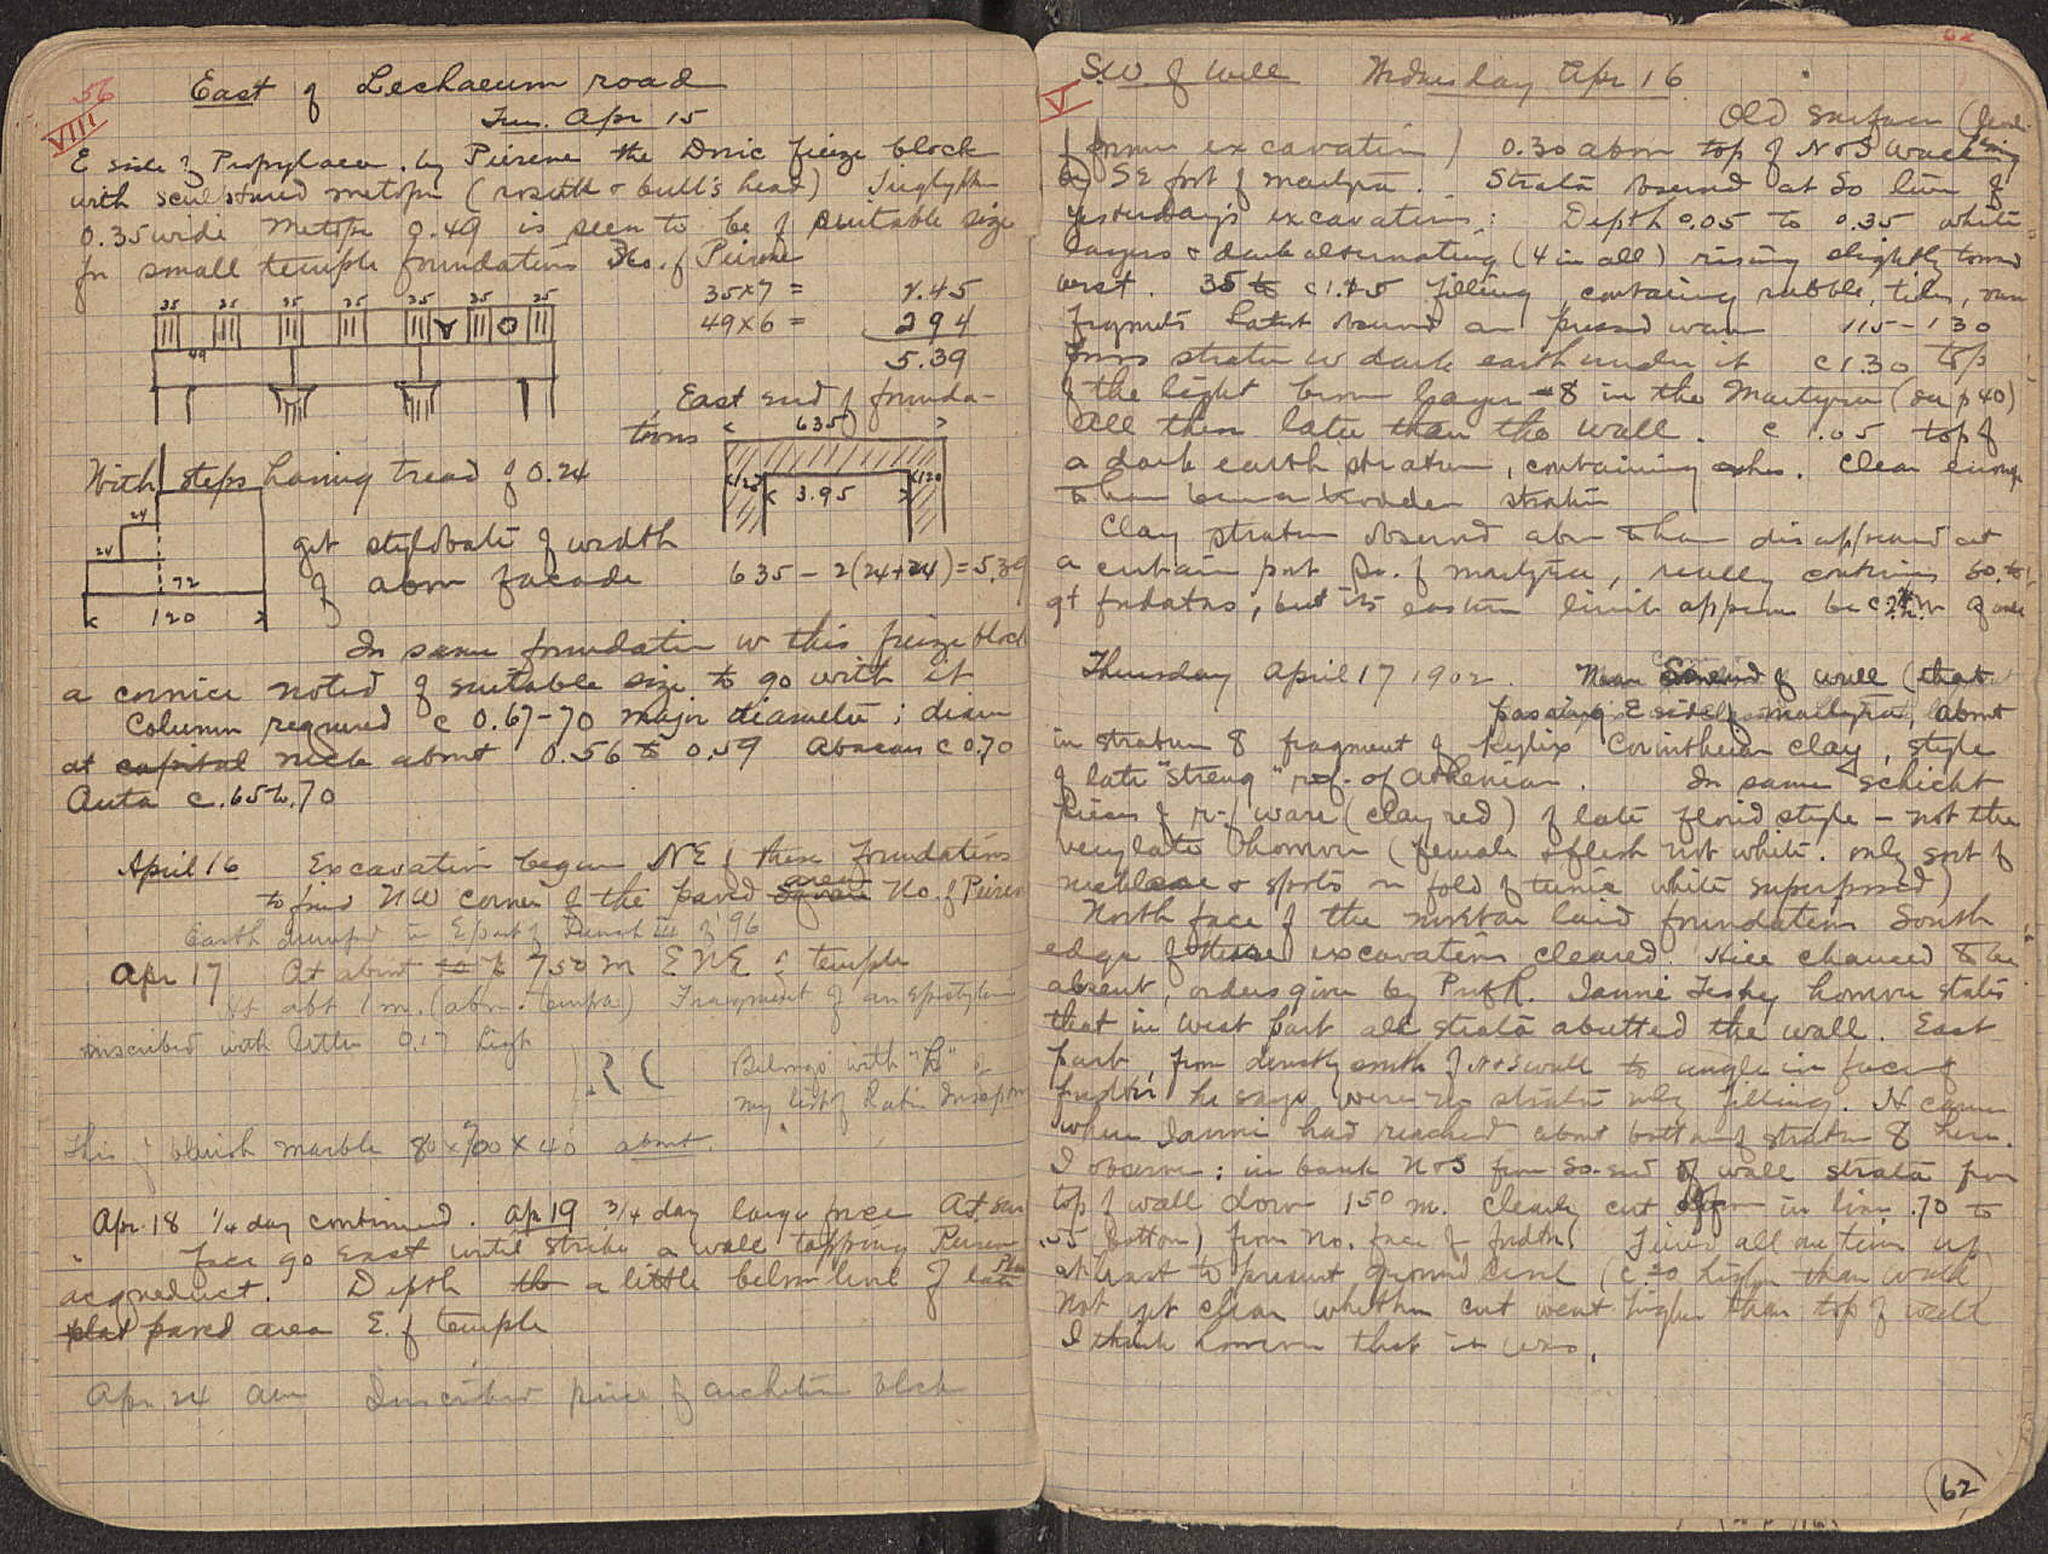 56
VIII
East of Lechaeum road
Tues. Apr 15
E side of Propylaea, by Peirene the Doric frieze block
with sculptured metope (rosette & bull's head) Triglyph
0.35 wide Metope 0.49 is seen to be of suitable size
for small temple foundations No. of Peirene
35×7 = 2.45
49×6 = 294
5.39
35 35 35 35 35 35 35
49
East end of founda-
tions 635
120 3.95 120
With steps having tread of 0.24
24
24
72
120
get stylobate of width
of above facade 635 – 2(24+24) = 5.39
In same foundation w this frieze block
a cornice noted of suitable size to go with it
Column required c 0.67–70 major diameter; diam
at capital neck about 0.56 to 0.59 Abacus c 0.70
Anta c .65 to .70
April 16 Excavation begun NE of these foundations
to find NW corner of the paved square area No. of Peirene
Earth dumped in E part of Trench III of '96
Apr 17 At about 7 50 m ENE of temple
At abt 1 m. (above temple) Fragment of an epistyle
inscribed with letter 0.17 high
R C
Belongs with "R" of
my list of Latin Inscriptns
This of bluish marble 80×700×40 about.
Apr. 18 1/4 day continued. Apr 19 3/4 day large force At
face go East until strike a wall tapping Peirene
acqueduct. Depth the a little below level of late
plat paved area E. of temple
Apr 24 am Inscribed piece of architrave block
V
S.W. of Well Wednesday Apr 16
Old surface (level
of former excavation) 0.30 above top of N & S wall
by SE part of martyra. Strata observed at So line of
yesterday's excavations: Depth 0.05 to 0.35 white
layers & dark alternating (4 in all) rising slightly toward
west. 35 to c 1.15 filling containing rubble, tiles, vase
fragments latest observed are pressed ware 115–130
brown stratum w dark earth under it c 1.30 top
of the light brown layer – 8 in the Martyra (see p 40)
All then later than the wall. c 1.05 top of
a dark earth stratum, containing ashes. Clear enough
to have been a trodden stratum
Clay stratum observed above to have disappeared at
a certain part So. of martyra, really continues So. to
gt fndatns, but its eastern limit appears be c 2 m
Thursday April 17 1902. Near So end of wall (that
passing E side of martyra, about
in stratum 8 fragment of Kylix Corinthian clay, style
of late "streng" r-f. of Athenian. In same schicht
pieces of r-f ware (clay red) of late florid style – not the
very late however (female flesh not white. only sort of
necklace & spots on fold of tunic white superposed)
North face of the mortar laid foundations South
edge of these excavations cleared. Hill chanced to be
absent, orders given by Prof R. Ianni Tesky however states
that in West part all strata abutted the wall. East
part, from directly south of N & S wall to angle in face of
fndtn he says were no strata only filling. H came
when Ianni had reached about bottom of stratum 8 here.
I observe: in bank N & S from So. end of wall strata from
top of wall down 1 50 m. clearly cut off in line .70 to
.55 (bottom) from No. face of fndtn. Fines all on term up
at least to present ground level (c. 20 higher than wall)
Not yet clear whether cut went higher than top of wall
I think however that it was.
62